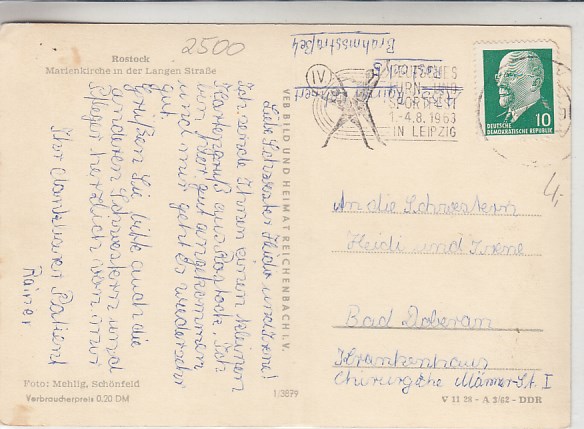 2500
Rostock
Marienkirche in der Langen Straße
Brahmsstraße 4
IV
DEUTSCHES
TURN- UND
SPORTFEST
1.-4.8.1963
IN LEIPZIG
10
DEUTSCHE
DEMOKRATISCHE REPUBLIK
Liebe Schwester Heidi und Irene!
Ich sende Ihnen einen kleinen
Kartengruß aus Rostock. Ich
bin hier gut angekommen
und mir geht es wieder sehr
gut.
Grüßen Sie bitte auch die
anderen Schwestern und
Pfleger herzlich von mir
Ihr dankbarer Patient
Rainer
VEB BILD UND HEIMAT REICHENBACH I. V.
An die Schwestern
Heidi und Irene
Bad Doberan
Krankenhaus
Chirurgische Männer-St. I
Foto: Mehlig, Schönfeld
Verbraucherpreis 0,20 DM
1/3879
V 11 28 - A 3/62 - DDR